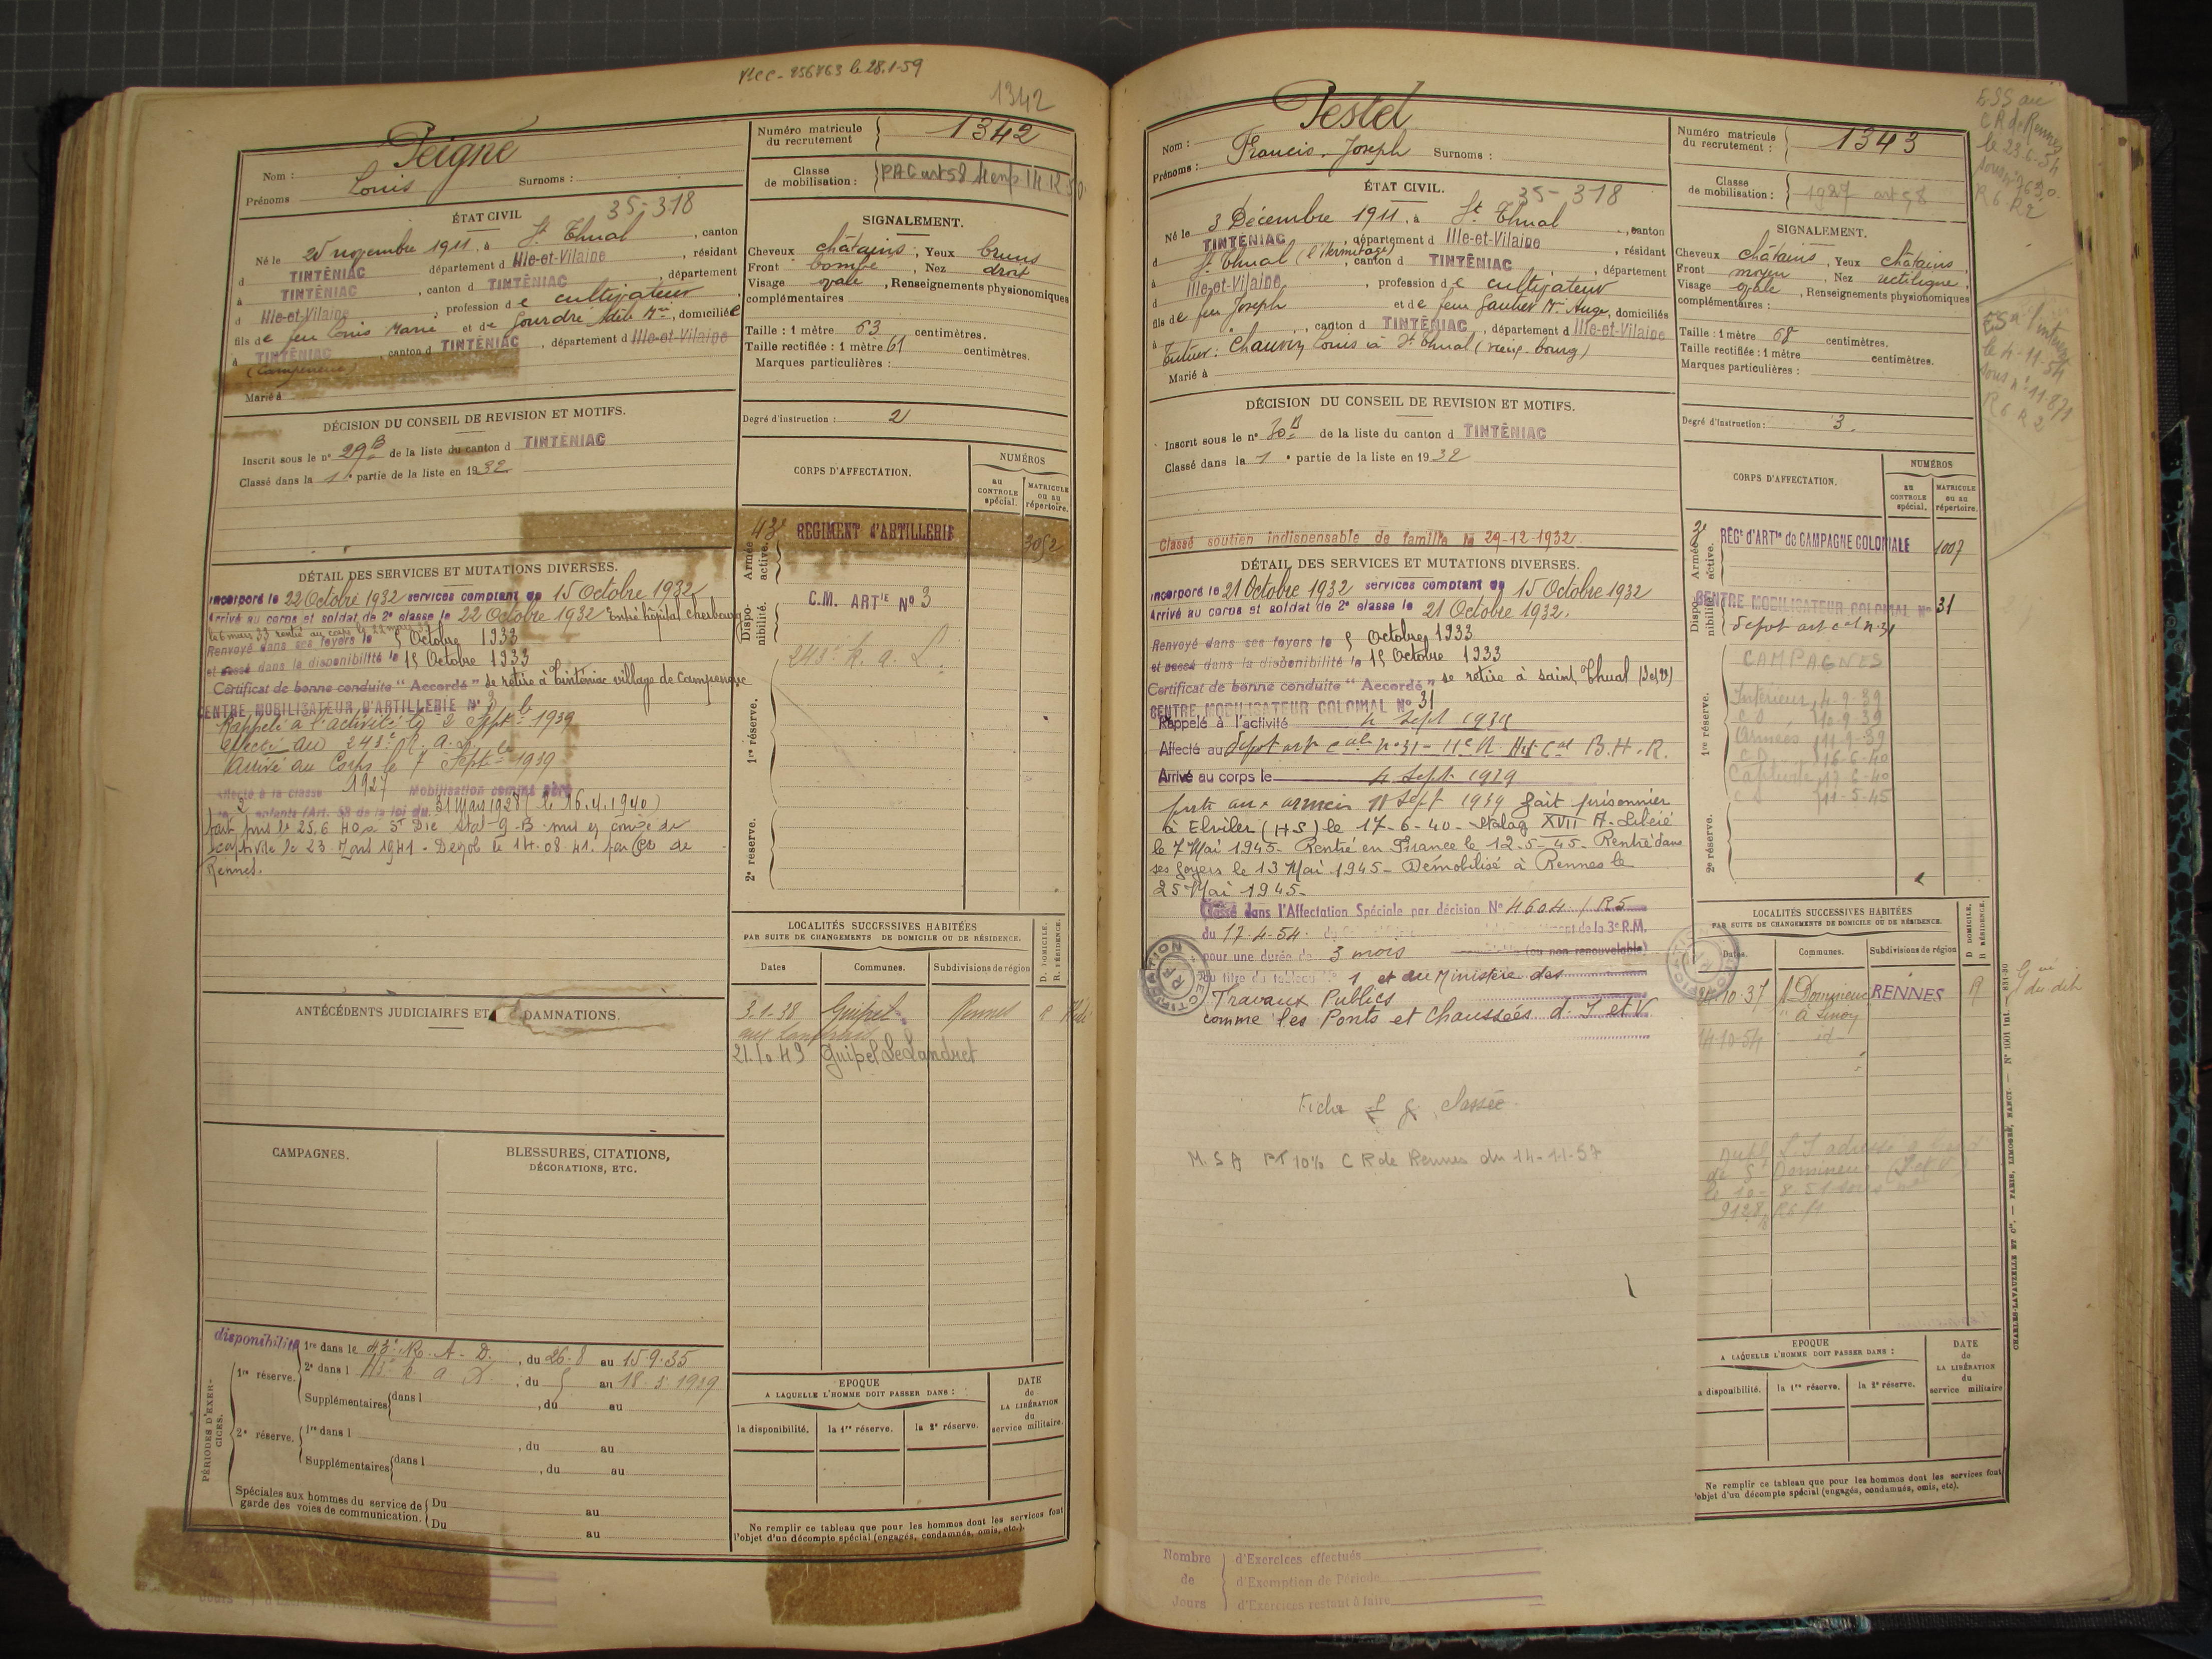 PLCC - 256763 le 28.1.59
1342
Nom : Peigné
Prénoms Louis Surnoms :
Numéro matricule du recrutement 1342
Classe de mobilisation :
ÉTAT CIVIL 35-318
Né le 25 novembre 1911 à St Thual, canton
d TINTÉNIAC département d Ille-et-Vilaine, résidant
à TINTÉNIAC, canton d TINTÉNIAC, département
d Ille-et-Vilaine, profession de cultivateur
fils de feu Louis Marie et de Gourdré Adèle Mie, domiciliée
à TINTÉNIAC, canton d TINTÉNIAC, département d Ille-et-Vilaine
Marié à
SIGNALEMENT.
Cheveux châtains, Yeux bruns
Front bombé, Nez droit
Visage ovale, Renseignements physionomiques
complémentaires
Taille : 1 mètre 63 centimètres.
Taille rectifiée : 1 mètre 61 centimètres.
Marques particulières :
Degré d'instruction : 2
DÉCISION DU CONSEIL DE REVISION ET MOTIFS.
Inscrit sous le n° 29B de la liste du canton d TINTÉNIAC
Classé dans la 1e partie de la liste en 1932
CORPS D'AFFECTATION.
NUMÉROS
au CONTROLE spécial.
MATRICULE ou au répertoire.
Armée active.
43e REGIMENT D'ARTILLERIE 3052
Disponibilité.
C.M. ARTIE N° 3
1re réserve.
243e R. A. L.
2e réserve.
DÉTAIL DES SERVICES ET MUTATIONS DIVERSES.
Incorporé le 22 Octobre 1932 services comptant du 15 Octobre 1932
Arrivé au corps et soldat de 2e classe le 22 Octobre 1932 Entré hôpital Cherbourg
le 6 mars 33 rentré au corps le 22 mars 33
Renvoyé dans ses foyers le 5 Octobre 1933
et passé dans la disponibilité le 15 Octobre 1933
Certificat de bonne conduite "Accordé" se retire à Tinténiac village de Campeneuc
CENTRE MOBILISATEUR D'ARTILLERIE N° 3
Rappelé à l'activité le 2 Septbe 1939
affecté au 243e R. a. L.
Arrivé au Corps le 7 Septbe 1939
Affecté à la classe 1927 Mobilisation comme père
de 2 enfants (Art. 58 de la loi du 31 Mars 1928 (le 16.4.1940)
fait pris le 25.6 40 à St Dié Stal-9-B mis en congé de
captivité le 23 1941. Demob le 14.08.41. par de
Rennes.
ANTÉCÉDENTS JUDICIAIRES ET DAMNATIONS.
LOCALITÉS SUCCESSIVES HABITÉES
PAR SUITE DE CHANGEMENTS DE DOMICILE OU DE RÉSIDENCE.
Dates Communes. Subdivisions de région D. DOMICILE. R. RÉSIDENCE.
3.1.38 Guipel Rennes R
21.10.49 Guipel Le Landret
CAMPAGNES.
BLESSURES, CITATIONS, DÉCORATIONS, ETC.
PÉRIODES D'EXERCICES.
disponibilité
1re réserve. 1re dans le 43e R. A. D., du 26.8 au 15.9.35
2e dans l R. a. L., du 5 au 18.3.1939
Supplémentaires dans l , du au
2e réserve. 1re dans l , du au
Supplémentaires dans l , du au
Spéciales aux hommes du service de garde des voies de communication. Du au
Du au
EPOQUE
A LAQUELLE L'HOMME DOIT PASSER DANS :
la disponibilité. la 1re réserve. la 2e réserve.
DATE de LA LIBÉRATION du service militaire.
Ne remplir ce tableau que pour les hommes dont les services font
l'objet d'un décompte spécial (engagés, condamnés, omis, etc.).
Nom : Pestel
Prénoms : Francis, Joseph Surnoms :
Numéro matricule du recrutement : 1343
Classe de mobilisation : 1927 art 58
ESS au
CR de Rennes
le 23.6.54
R6.R2
ÉTAT CIVIL. 35-318
Né le 3 Décembre 1911, à St Thual, canton
d TINTÉNIAC, département d Ille-et-Vilaine, résidant
à St Thual (l'Hermitage), canton d TINTÉNIAC, département
d Ille-et-Vilaine, profession de cultivateur
fils de feu Joseph et de feu Gautier Mie Ange, domiciliés
à , canton d TINTÉNIAC, département d Ille-et-Vilaine
Tuteur : Chauvin Louis à St Thual (vieux-bourg)
Marié à
SIGNALEMENT.
Cheveux châtains, Yeux châtains,
Front moyen, Nez rectiligne,
Visage ovale, Renseignements physionomiques
complémentaires :
Taille : 1 mètre 68 centimètres.
Taille rectifiée : 1 mètre centimètres.
Marques particulières :
Degré d'instruction : 3.
le 4-11-54
sous n° 11.871
R6 R2
DÉCISION DU CONSEIL DE REVISION ET MOTIFS.
Inscrit sous le n° 30B de la liste du canton d TINTÉNIAC
Classé dans la 1e partie de la liste en 1932
Classé soutien indispensable de famille le 29-12-1932.
CORPS D'AFFECTATION.
NUMÉROS
au CONTROLE spécial.
MATRICULE ou au répertoire.
Armée active.
3e RÉGt d'ARTie de CAMPAGNE COLONIALE 1007
Disponibilité.
CENTRE MOBILISATEUR COLONIAL N° 31
depot art cal n° 31
1re réserve.
CAMPAGNES
Intérieur 4-9-39
C.D. 10-9-39
Armées 11-9-39
C.D. 16-6-40
Captivité 17-6-40
C.S. 11-5-45
2e réserve.
DÉTAIL DES SERVICES ET MUTATIONS DIVERSES.
Incorporé le 21 Octobre 1932 services comptant du 15 Octobre 1932
Arrivé au corps et soldat de 2e classe le 21 Octobre 1932.
Renvoyé dans ses foyers le 5 Octobre 1933
et passé dans la disponibilité le 15 Octobre 1933
Certificat de bonne conduite "Accordé" se retire à saint Thual
CENTRE MOBILISATEUR COLONIAL N° 31
Rappelé à l'activité 4 Sept 1939
Affecté au depot art cale n° 31 - B.H.R.
Arrivé au corps le 4 Sept 1939
parti aux armées 11 Sept 1939 fait prisonnier
à Elviler (HS) le 17-6-40 - Stalag XVII A. Libéré
le 7 Mai 1945 - Rentré en France le 12-5-45 - Rentré dans
ses foyers le 13 Mai 1945 - Démobilisé à Rennes le
25 Mai 1945 -
Classé dans l'Affectation Spéciale par décision N° 4604 / R5
du 17-4-54 de la 3e R.M.
pour une durée de 3 mois (ou non renouvelable)
au titre du tableau 1 et du Ministère des
Travaux Publics
comme les Ponts et Chaussées d. I et V
RECTIFICATION
Fiche classée
M.S.A PT 10% CR de Rennes du 14-11-57
LOCALITÉS SUCCESSIVES HABITÉES
PAR SUITE DE CHANGEMENTS DE DOMICILE OU DE RÉSIDENCE.
Dates. Communes. Subdivisions de région D DOMICILE. R RÉSIDENCE.
10-37 St Domineuc RENNES R
14-10-54 id
EPOQUE
A LAQUELLE L'HOMME DOIT PASSER DANS :
la disponibilité. la 1re réserve. la 2e réserve.
DATE de LA LIBÉRATION du service militaire
Ne remplir ce tableau que pour les hommes dont les services font
l'objet d'un décompte spécial (engagés, condamnés, omis, etc).
CHARLES-LAVAUZELLE ET Cie. — PARIS, LIMOGES, NANCY. — N° 1001 Int. 831-30
Nombre de Jours
d'Exercices effectués
d'Exemption de Période
d'Exercices restant à faire